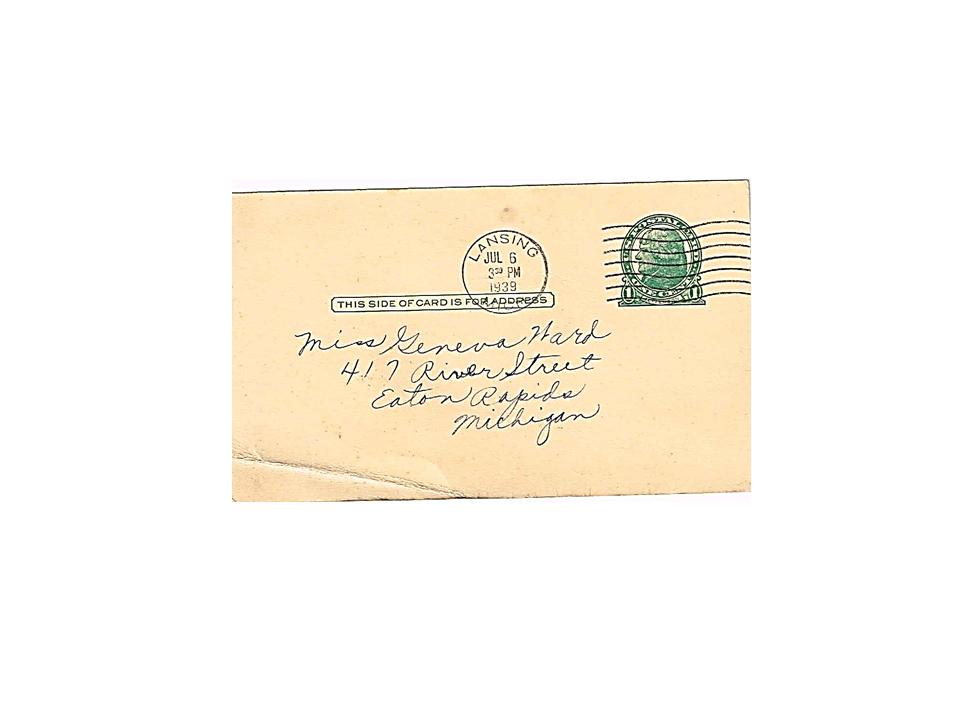 LANSING
JUL 6
3 30 PM
1939
MICH.
THIS SIDE OF CARD IS FOR ADDRESS
1 1
Miss Geneva Ward
417 River Street
Eaton Rapids
Michigan